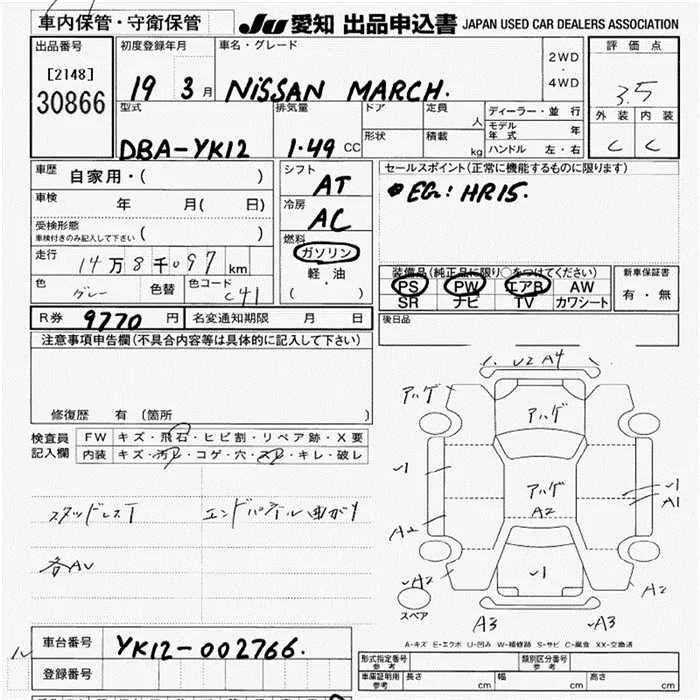 車内保管・守衛保管
JU 愛知 出品申込書 JAPAN USED CAR DEALERS ASSOCIATION
出品番号
[2148]
30866
初度登録年月
19 3 月
車名・グレード
NISSAN MARCH.
2WD
・
4WD
評価点
3.5
外装 内装
C C
型式
DBA-YK12
排気量
1.49 CC
ドア
定員
人
形状
積載
kg
ディーラー・並行
モデル年式 年
ハンドル 左・右
車歴
自家用・( )
車検
年 月( 日)
受検形態
車検付きのみ記入して下さい ( )
走行
14万8千097 km
色
グレー
色替
色コード
C41
シフト
AT
冷房
AC
燃料
ガソリン
軽・油
( )
セールスポイント(正常に機能するものに限ります)
EG: HR15.
装備品(純正品に限り○をつけてください)
PS PW エアB AW
SR ナビ TV カワシート
新車保証書
有・無
後日品
R券 9770 円
名変通知期限 月 日
注意事項申告欄(不具合内容等は具体的に記入して下さい)
修復歴 有 (箇所 )
検査員
記入欄
FW キズ・飛石・ヒビ割・リペア跡・X要
内装 キズ・汚れ・コゲ・穴・スレ・キレ・破レ
スタッドレスT
エンドパネル曲がり
各AU
U2 A4
アハゲ
アハゲ
アハゲ
A2
A1
A2
A2
A2
A3
A3
スペア
A-キズ E-エクボ U-凹み W-補修跡 S-サビ C-腐食 XX-交換済
車台番号
YK12-002766.
登録番号
形式指定番号
参考
類別区分番号
参考
車庫証明用
参考
長さ cm
幅 cm
高さ cm